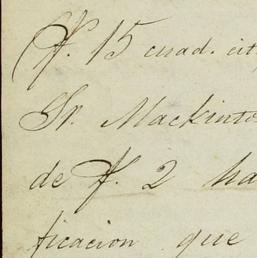 (f. 15 cuad. cit
Sr. Mackinto
de f. 2 ha
ficacion que